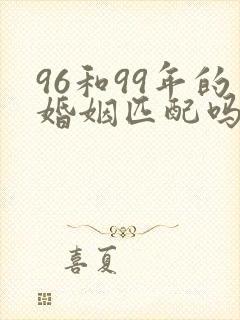 96和99年的
婚姻匹配吗
喜夏